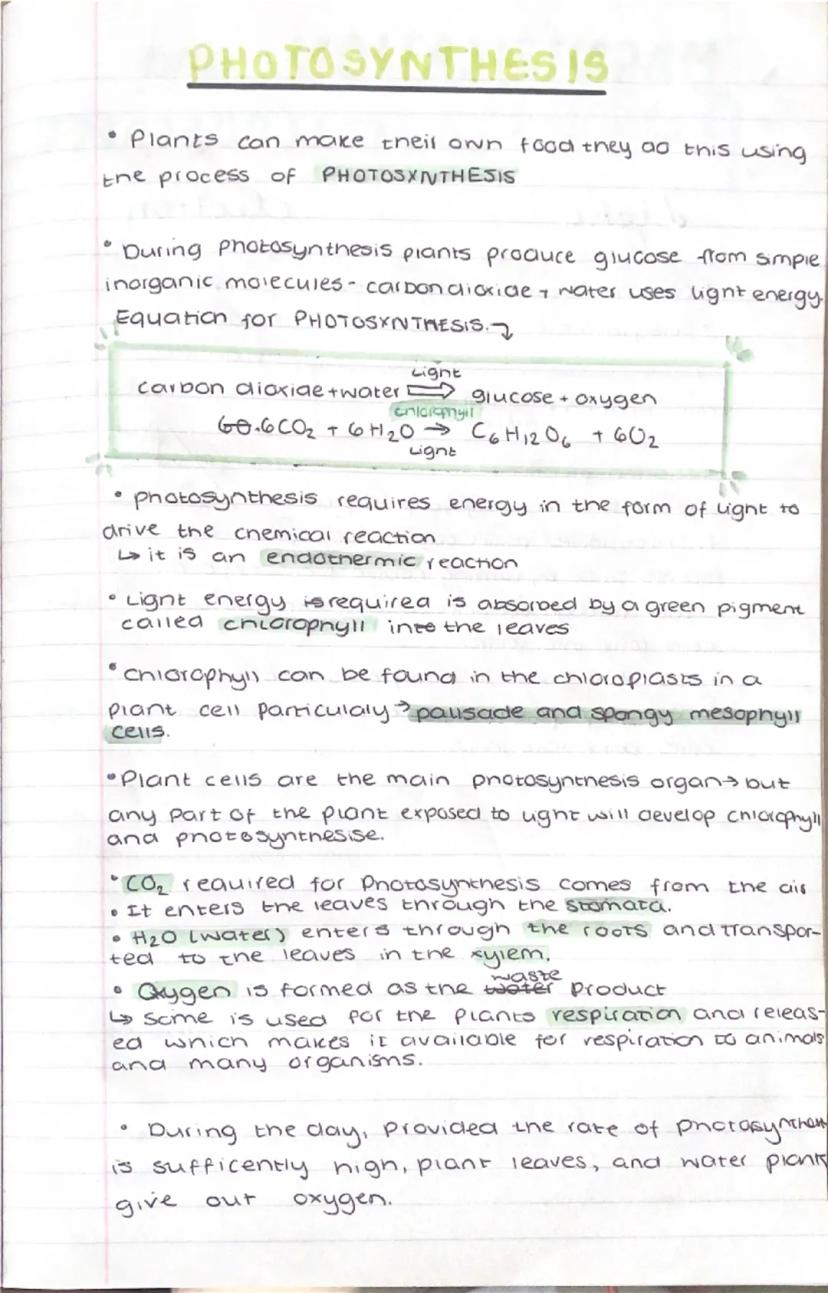 PHOTOSYNTHESIS
• Plants can make their own food they do this using
the process of PHOTOSYNTHESIS
• During photosynthesis plants produce glucose from simple
inorganic molecules - carbon dioxide + water uses light energy.
Equation for PHOTOSYNTHESIS.
Light
carbon dioxide + water ⇒ glucose + oxygen
chlorophyll
6CO₂ + 6H₂O → C₆H₁₂O₆ + 6O₂
Light
• photosynthesis requires energy in the form of light to
drive the chemical reaction
↳ it is an endothermic reaction
• Light energy is required is absorbed by a green pigment
called chlorophyll into the leaves
• chlorophyll can be found in the chloroplasts in a
plant cell particulaly → palisade and spongy mesophyll
cells.
• Plant cells are the main photosynthesis organ → but
any part of the plant exposed to light will develop chlorophyll
and photosynthesise.
• CO₂ required for Photosynthesis comes from the air
• It enters the leaves through the stomata.
• H₂O (water) enters through the roots and transpor-
ted to the leaves in the xylem.
waste
• Oxygen is formed as the water product
↳ some is used for the plants respiration and releas-
ed which makes it available for respiration to animals
and many organisms.
• During the day, provided the rate of photosynthesis
is sufficently high, plant leaves, and water plants
give out oxygen.